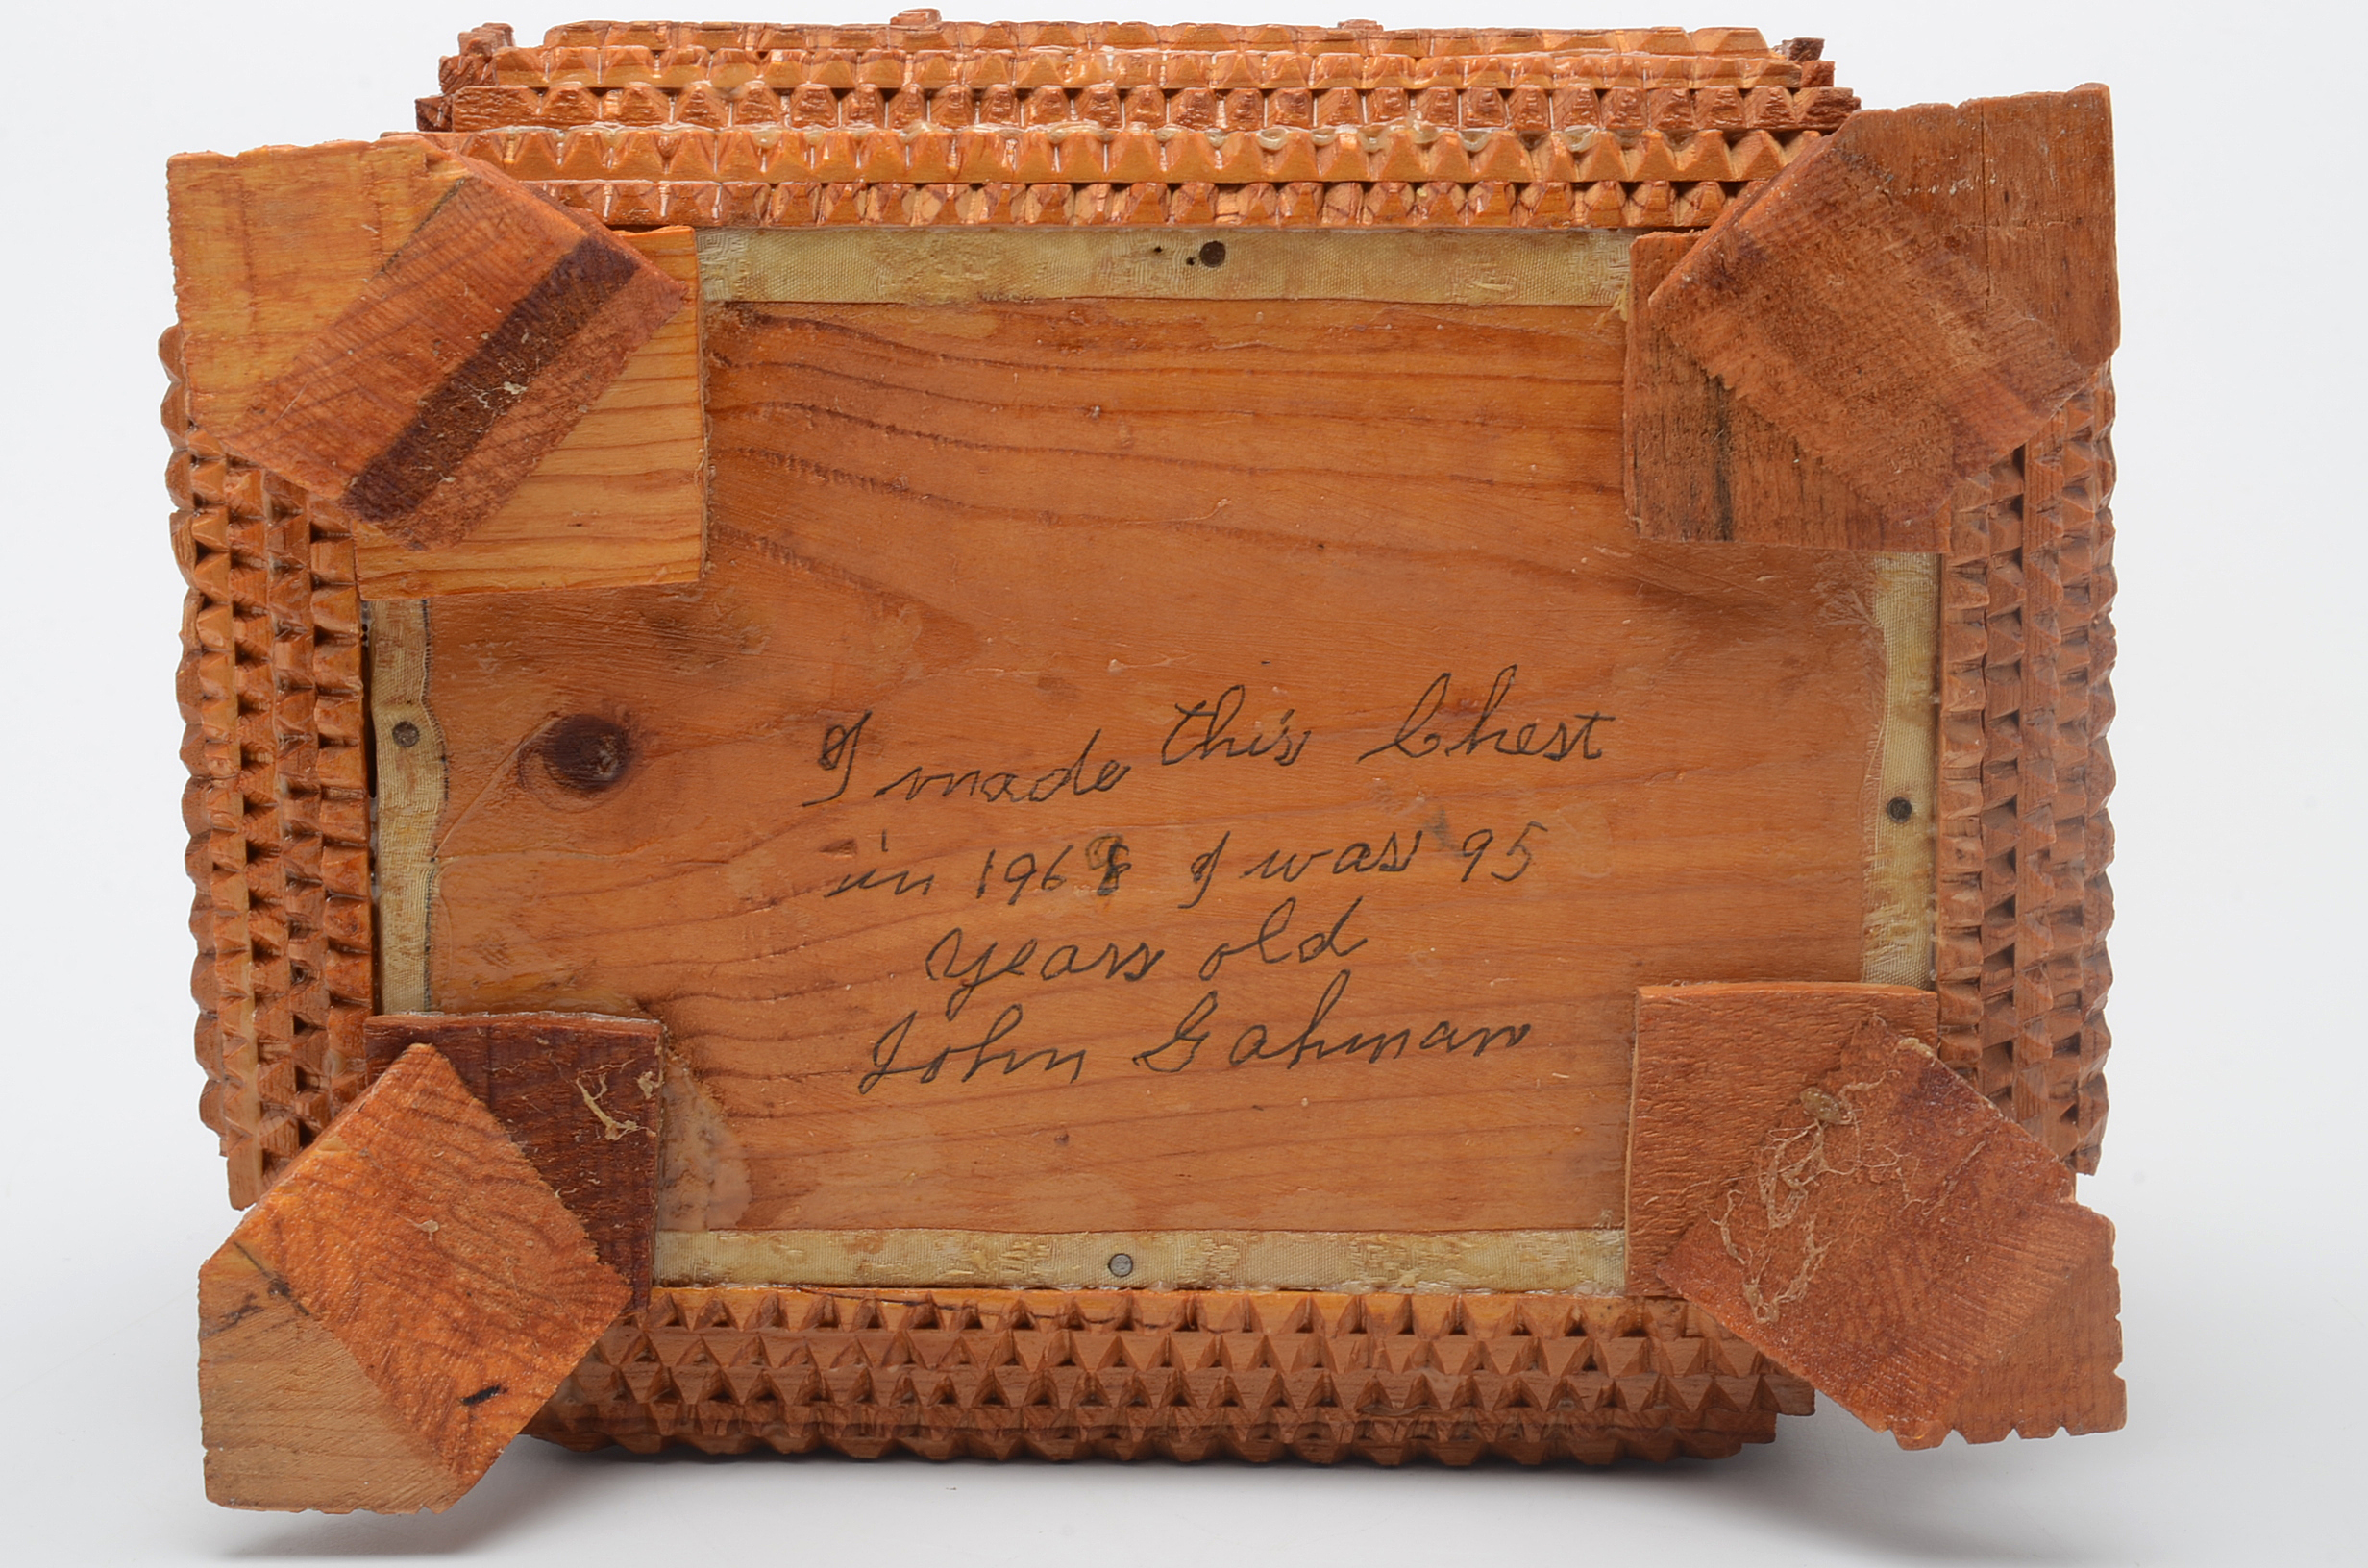 I made this Chest
in 1968 I was 95
years old
John Gahman